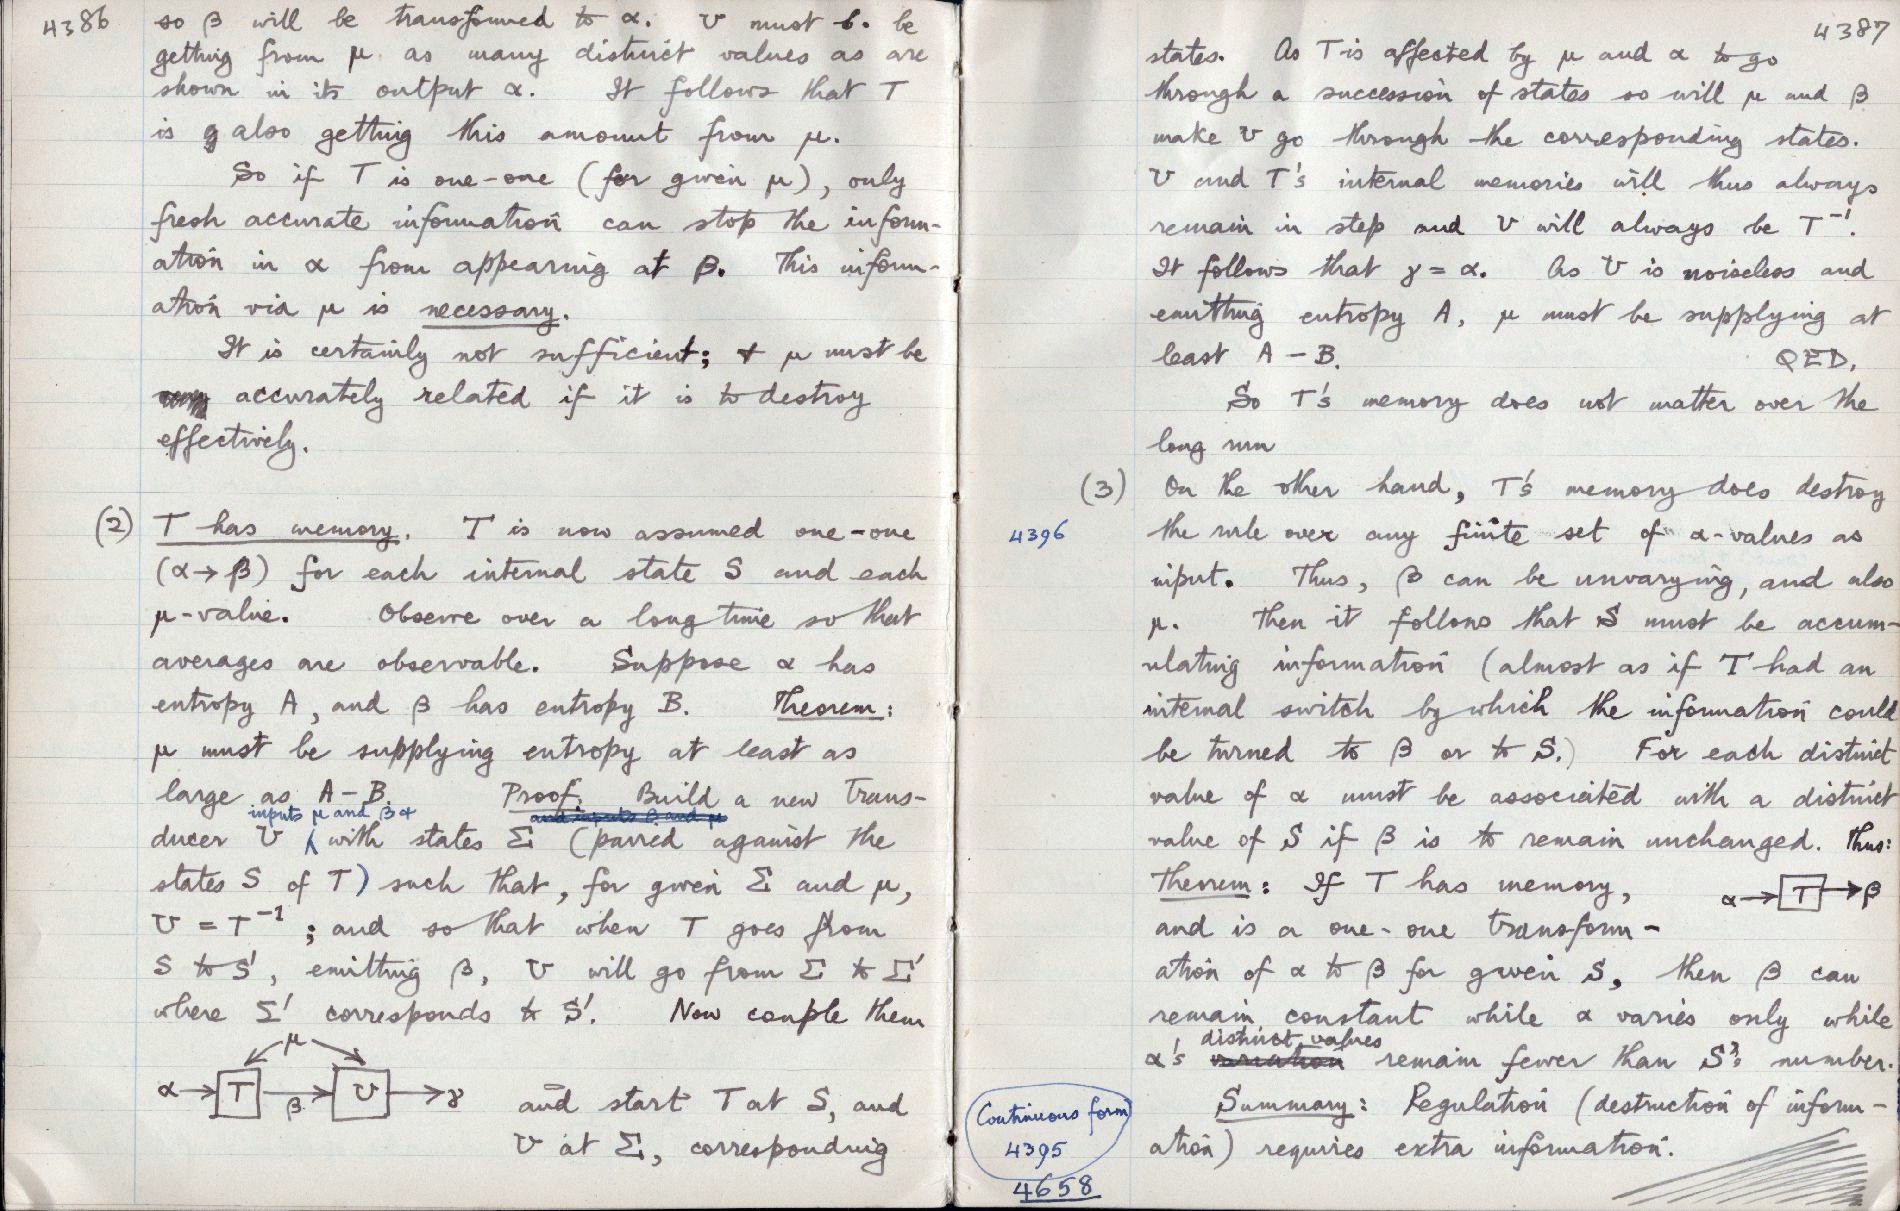 4386
so β will be transformed to α. U must b. be
getting from μ as many distinct values as are
shown in its output α. It follows that T
is g also getting this amount from μ.
So if T is one-one (for given μ), only
fresh accurate information can stop the inform-
ation in α from appearing at β. This inform-
ation via μ is necessary.
It is certainly not sufficient; + μ must be
accurately related if it is to destroy
effectively.
(2) T has memory. T is now assumed one-one
(α→β) for each internal state S and each
μ-value. Observe over a long time so that
averages are observable. Suppose α has
entropy A, and β has entropy B. Theorem:
μ must be supplying entropy at least as
large as A-B. Proof. Build a new trans-
inputs μ and β + and inputs β and μ
ducer U with states Σ (paired against the
states S of T) such that, for given Σ and μ,
U = T⁻¹; and so that when T goes from
S to S', emitting β, U will go from Σ to Σ'
where Σ' corresponds to S'. Now couple them
μ
α → T → β → U → γ
and start T at S, and
U at Σ, corresponding
4387
states. As T is affected by μ and α to go
through a succession of states so will μ and β
make U go through the corresponding states.
U and T's internal memories will thus always
remain in step and U will always be T⁻¹.
It follows that γ = α. As U is noiseless and
emitting entropy A, μ must be supplying at
least A - B. QED.
So T's memory does not matter over the
long run
(3) On the other hand, T's memory does destroy
4396 the rule over any finite set of α-values as
input. Thus, β can be unvarying, and also
μ. Then it follows that S must be accum-
ulating information (almost as if T had an
internal switch by which the information could
be turned to β or to S.) For each distinct
value of α must be associated with a distinct
value of S if β is to remain unchanged. Thus:
Theorem: If T has memory, α → T → β
and is a one-one transform-
ation of α to β for given S, then β can
remain constant while α varies only while
distinct values
α's variation remain fewer than S's number.
Summary: Regulation (destruction of inform-
ation) requires extra information.
Continuous form
4395
4658